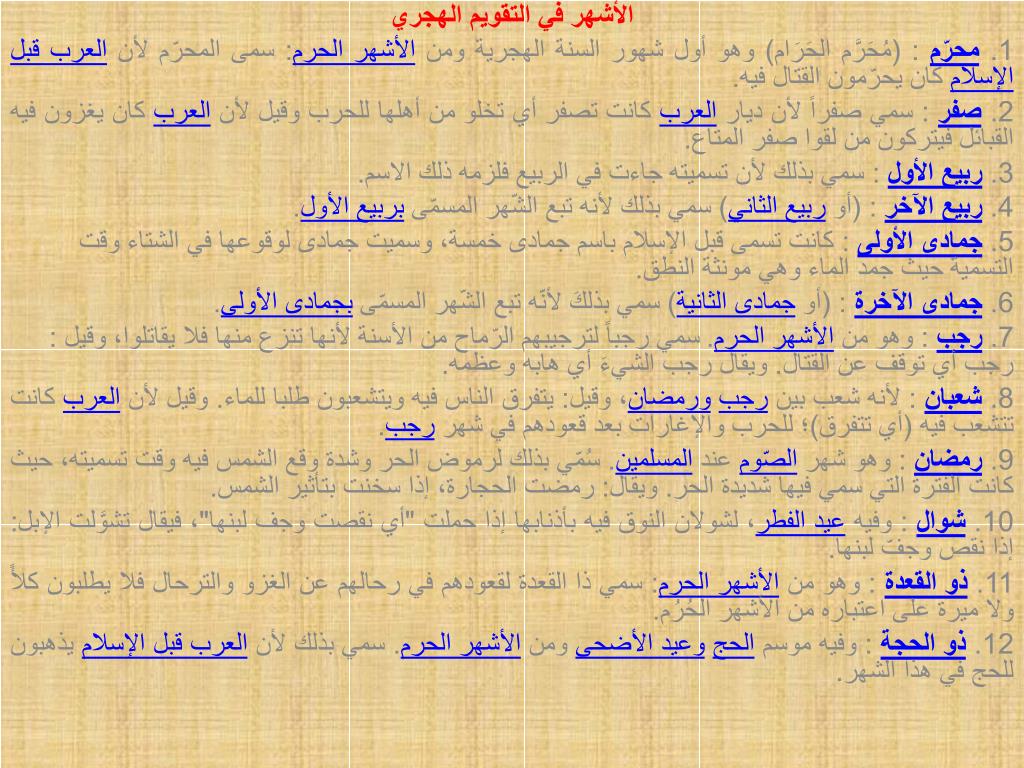 الأشهر في التقويم الهجري
1. محرّم : (مُحَرَّم الحَرَام) وهو أول شهور السنة الهجرية ومن الأشهر الحرم: سمى المحرّم لأن العرب قبل
الإسلام كان يحرّمون القتال فيه.
2. صفر : سمي صفراً لأن ديار العرب كانت تصفر أي تخلو من أهلها للحرب وقيل لأن العرب كان يغزون فيه
القبائل فيتركون من لقوا صفر المتاع.
3. ربيع الأول : سمي بذلك لأن تسميته جاءت في الربيع فلزمه ذلك الاسم.
4. ربيع الآخر : (أو ربيع الثاني) سمي بذلك لأنه تبع الشّهر المسمّى بربيع الأول.
5. جمادى الأولى : كانت تسمى قبل الإسلام باسم جمادى خمسة، وسميت جمادى لوقوعها في الشتاء وقت
التسمية حيث جمد الماء وهي مونثة النطق.
6. جمادى الآخرة : (أو جمادى الثانية) سمي بذلكَ لأنّه تبع الشّهر المسمّى بجمادى الأولى.
7. رجب : وهو من الأشهر الحرم. سمي رجباً لترجيبهم الرّماح من الأسنة لأنها تنزع منها فلا يقاتلوا، وقيل :
رجب أي توقف عن القتال. ويقال رجب الشيءَ أي هابه وعظمه.
8. شعبان : لأنه شعب بين رجب ورمضان، وقيل: يتفرق الناس فيه ويتشعبون طلبا للماء. وقيل لأن العرب كانت
تتشعب فيه (أي تتفرق)؛ للحرب والإغارات بعد قعودهم في شهر رجب.
9. رمضان : وهو شهر الصّوم عند المسلمين. سُمّي بذلك لرموض الحر وشدة وقع الشمس فيه وقت تسميته، حيث
كانت الفترة التي سمي فيها شديدة الحر. ويقال: رمضت الحجارة، إذا سخنت بتأثير الشمس.
10. شوال : وفيه عيد الفطر، لشولان النوق فيه بأذنابها إذا حملت "أي نقصت وجف لبنها"، فيقال تشوَّلت الإبل:
إذا نقص وجفّ لبنها.
11. ذو القعدة : وهو من الأشهر الحرم: سمي ذا القعدة لقعودهم في رحالهم عن الغزو والترحال فلا يطلبون كلأً
ولا ميرة على اعتباره من الأشهر الحُرُم.
12. ذو الحجة : وفيه موسم الحج وعيد الأضحى ومن الأشهر الحرم. سمي بذلك لأن العرب قبل الإسلام يذهبون
للحج في هذا الشهر.